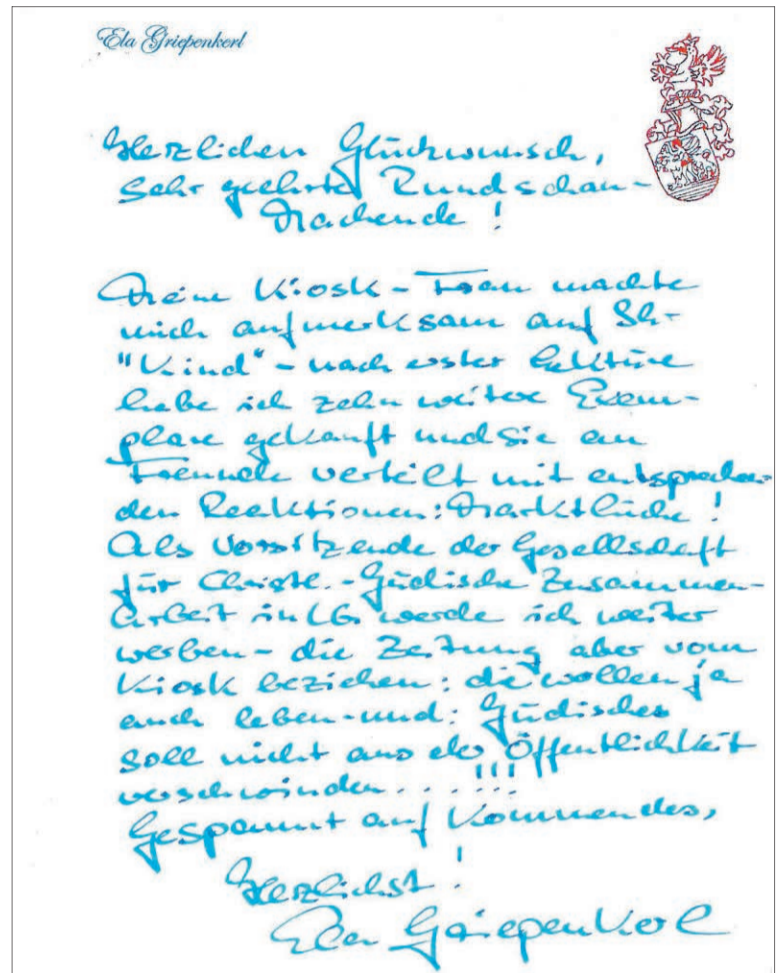 Ela Griepenkerl
Herzlichen Glückwunsch,
sehr geehrte Rundschau-
Machende!
Meine Kiosk-Frau machte
mich aufmerksam auf Ihr
"Kind" - nach erster Lektüre
habe ich zehn weitere Exem-
plare gekauft und sie an
Freunde verteilt mit entsprechen-
den Reaktionen: Marktlücke!
Als Vorsitzende der Gesellschaft
für Christl.-Jüdische Zusammen-
arbeit in LG. werde ich weiter
werben - die Zeitung aber vom
Kiosk beziehen: die wollen ja
auch leben - und: Jüdisches
soll nicht aus der Öffentlichkeit
verschwinden...!!!
Gespannt auf Kommendes,
Herzlichst!
Ela Griepenkerl